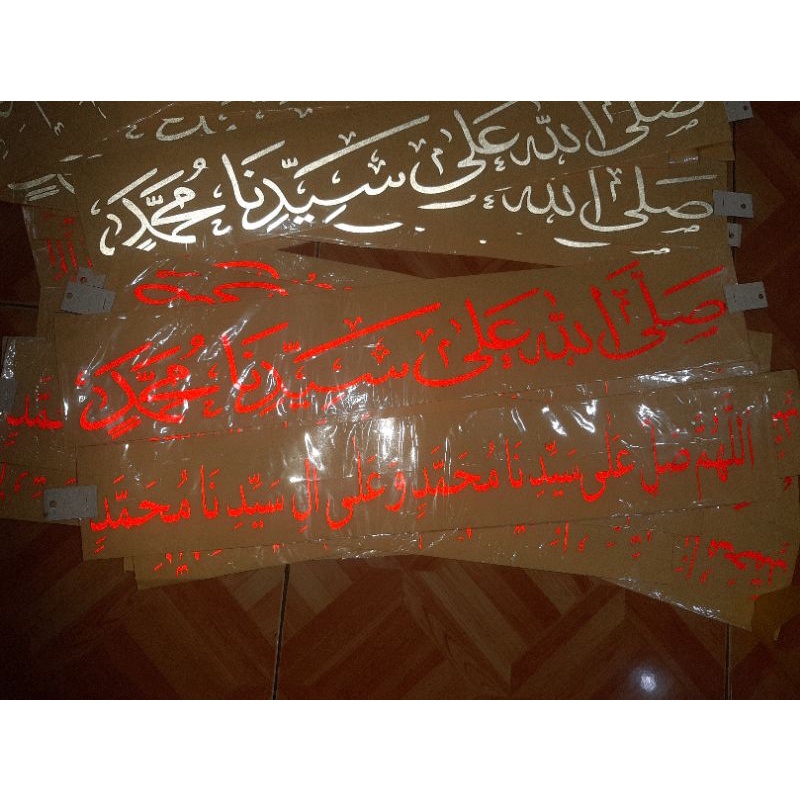 صلى الله على
صَلى الله عَلى سَيِّدِنَا مُحَمَّدٍ
صَلَّى الله عَلى سَيِّدِنَا مُحَمَّدٍ
اَللّٰهُمَّ صَلِّ عَلَى سَيِّدِنَا مُحَمَّدٍ وَعَلَى آلِ سَيِّدِنَا مُحَمَّدٍ